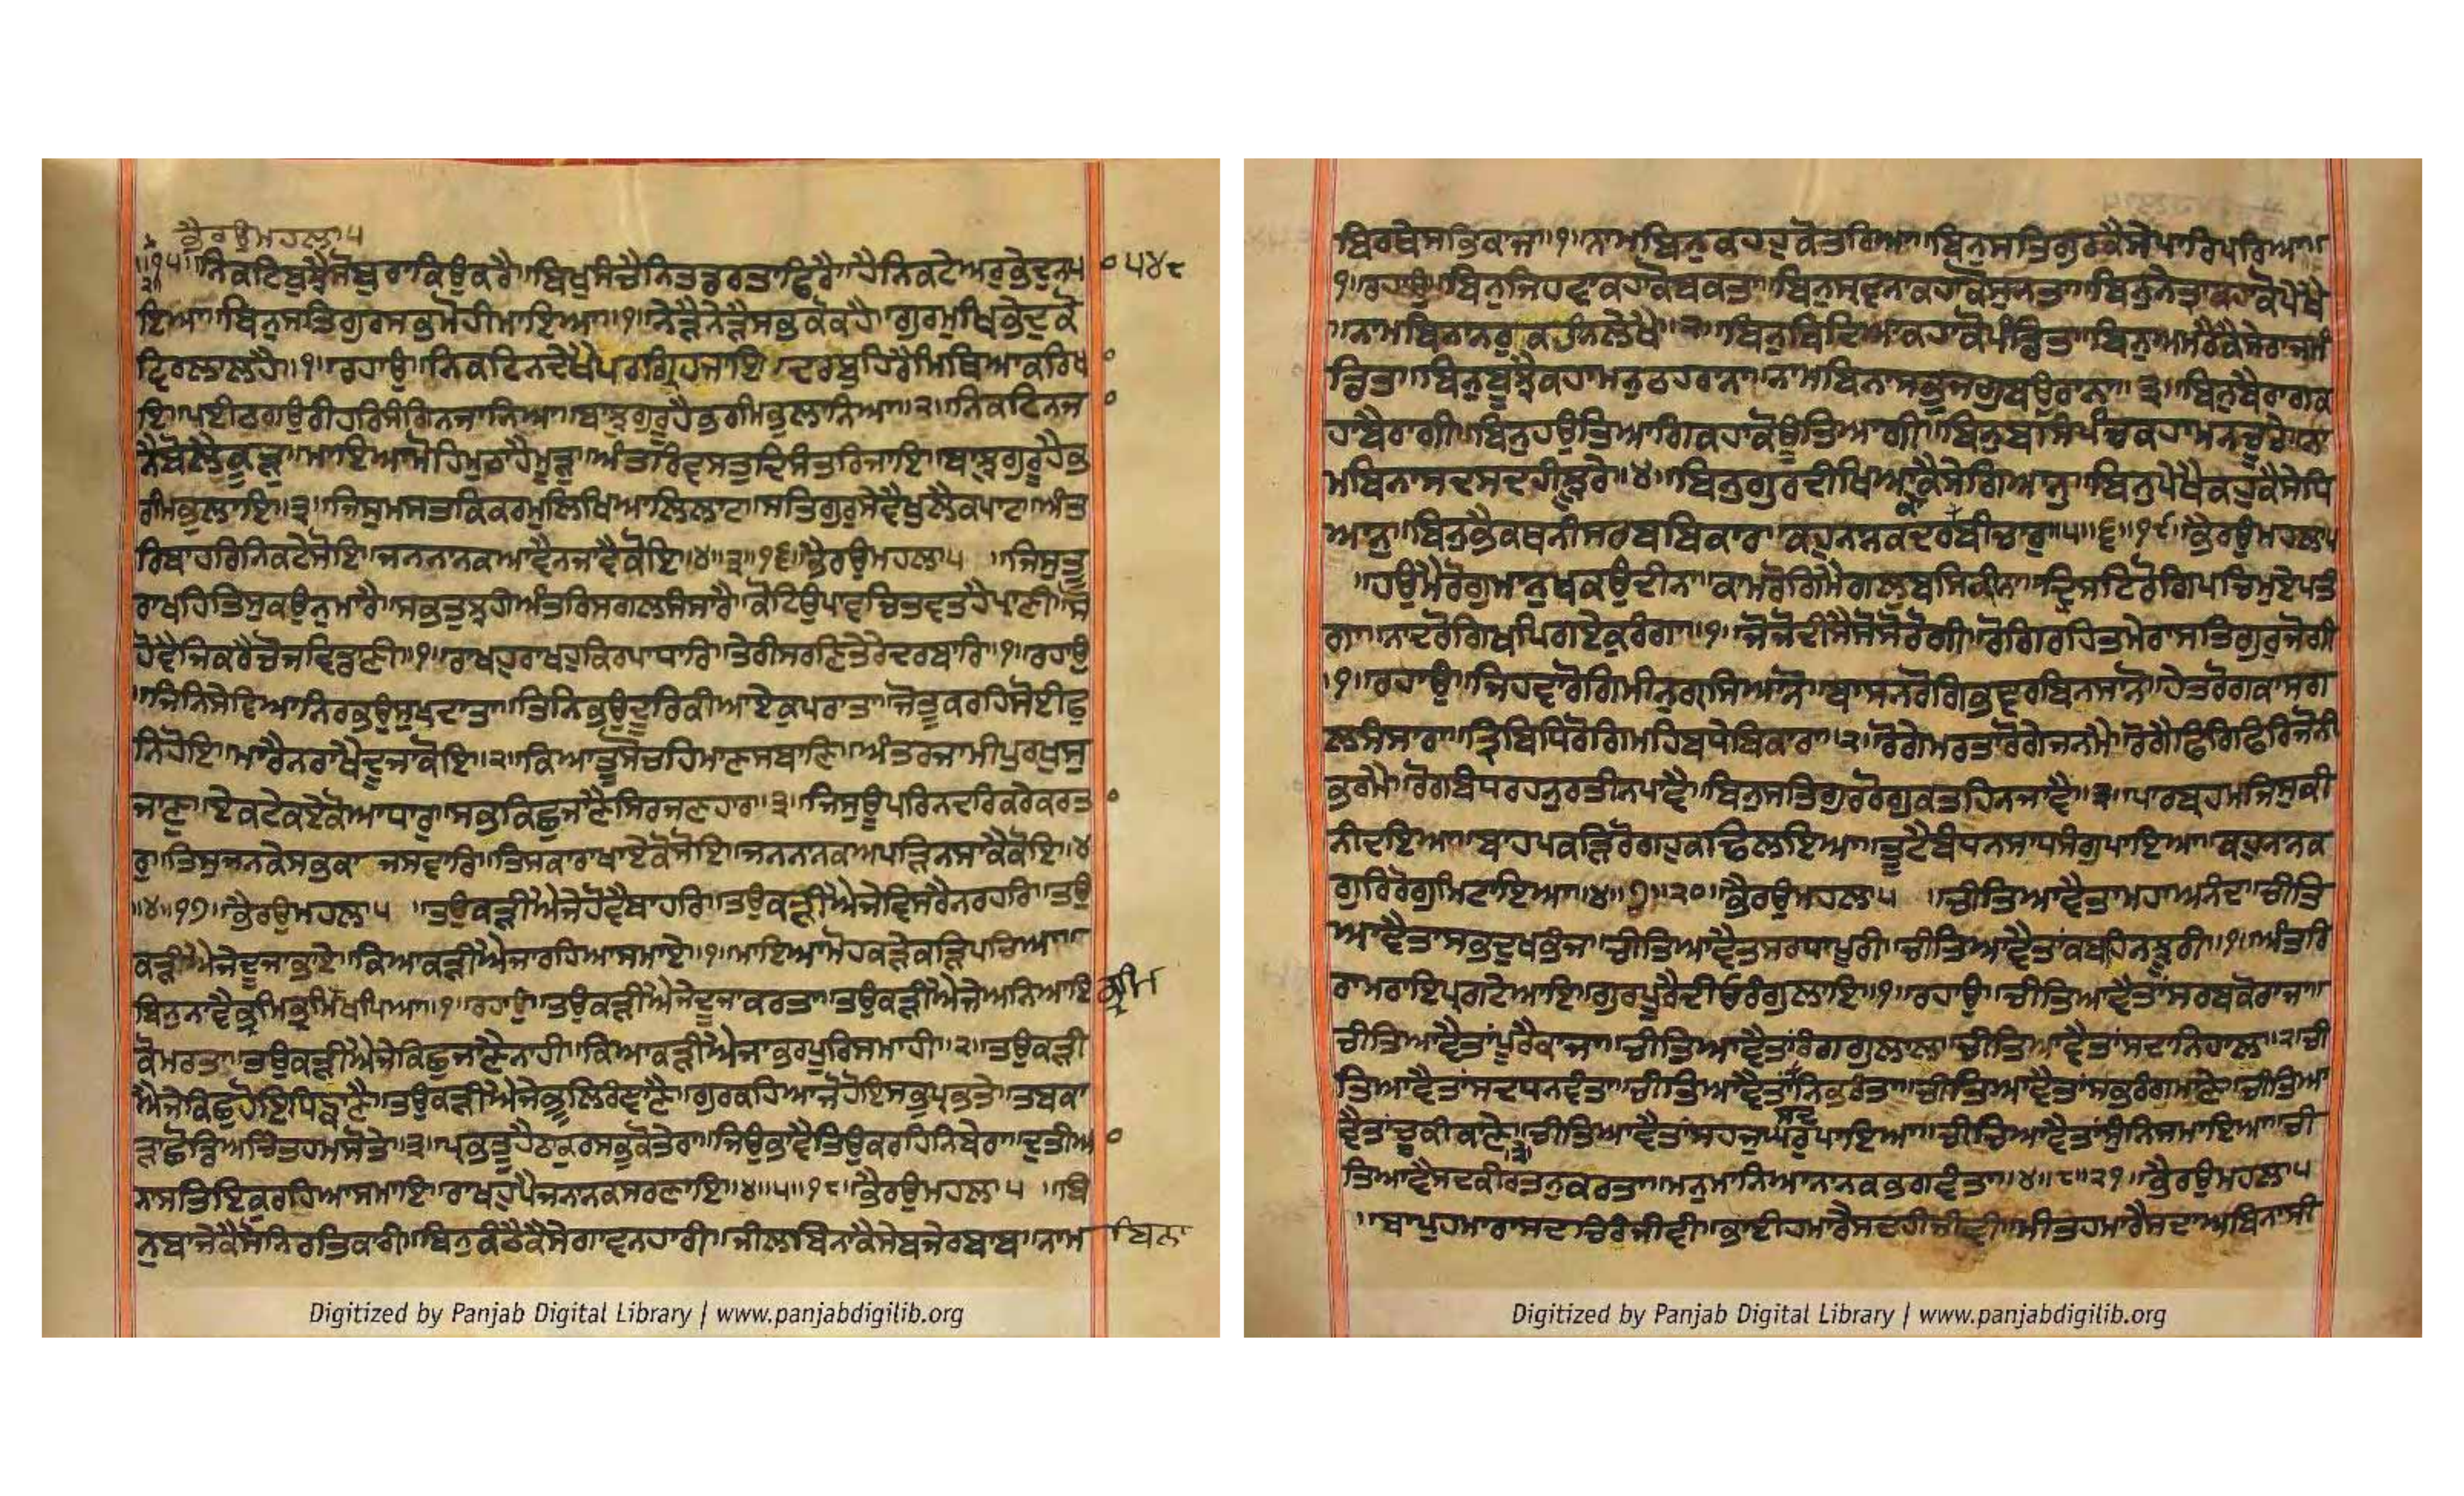 ਭੈਰਉਮਹਲਾ੫
॥੧੫॥ਨਿਕਟਿਬੁਝੈਸੋਬੁਰਾਕਿਉਕਰੈ॥ਬਿਖੁਸੰਚੈਨਿਤਡਰਤਾਫਿਰੈ॥ਹੈਨਿਕਟੇਅਰੁਭੇਦੁਨਪ ੫੪੮
ਇਆ॥ਬਿਨੁਸਤਿਗੁਰਸਭਮੋਹੀਮਾਇਆ॥੧॥ਨੇੜੈਨੇੜੈਸਭੁਕੋਕਹੈ॥ਗੁਰਮੁਖਿਭੇਦੁਕੋ
ਵਿਰਲਾਲਹੈ॥੧॥ਰਹਾਉ॥ਨਿਕਟਿਨਦੇਖੈਪਰਗ੍ਰਿਹਜਾਇ॥ਦਰਬੁਹਿਰੈਮਿਥਿਆਕਰਿਖ
ਇ॥ਪਈਠਗਉਰੀਹਰਿਸੰਗਿਨਜਾਨਿਆ॥ਬਾਝੁਗੁਰੂਹੈਭਰਮਿਭੁਲਾਨਿਆ॥੨॥ਨਿਕਟਿਨਜ
ਨੈਬੋਲੈਕੂੜੁ॥ਮਾਇਆਮੋਹਿਮੂਠਾਹੈਮੂੜੁ॥ਅੰਤਰਿਵਸਤੁਦਿਸੰਤਰਿਜਾਇ॥ਬਾਝੁਗੁਰੂਹੈਭ
ਰਮਿਭੁਲਾਇ॥੩॥ਜਿਸੁਮਸਤਕਿਕਰਮੁਲਿਖਿਆਲਿਲਾਟ॥ਸਤਿਗੁਰੁਸੇਵੈਖੁਲੈਕਪਾਟ॥ਅੰਤ
ਰਿਬਾਹਰਿਨਿਕਟੇਸੋਇ॥ਜਨਨਾਨਕਆਵੈਨਜਾਵੈਕੋਇ॥੪॥੩॥੧੬॥ਭੈਰਉਮਹਲਾ੫ ॥ਜਿਸੁਤੂ
ਰਾਖਹਿਤਿਸੁਕਉਨੁਮਾਰੈ॥ਸਭਤੁਝਹੀਅੰਤਰਿਸਗਲਸੰਸਾਰੈ॥ਕੋਟਿਉਪਾਵਚਿਤਵਤਹੈਪ੍ਰਾਣੀ॥ਸੋ
ਹੋਵੈਜਿਕਰੈਚੋਜਵਿਡਾਣੀ॥੧॥ਰਾਖਹੁਰਾਖਹੁਕਿਰਪਾਧਾਰਿ॥ਤੇਰੀਸਰਣਿਤੇਰੇਦਰਬਾਰਿ॥੧॥ਰਹਾਉ
॥ਜਿਨਿਸੇਵਿਆਨਿਰਭਉਸੁਖਦਾਤਾ॥ਤਿਨਿਭਉਦੂਰਿਕੀਆਏਕੁਪਰਾਤਾ॥ਜੋਤੂਕਰਹਿਸੋਈਫੁ
ਨਿਹੋਇ॥ਮਾਰੈਨਰਾਖੈਦੂਜਾਕੋਇ॥੨॥ਕਿਆਤੂਸੋਚਹਿਮਾਣਸਬਾਣਿ॥ਅੰਤਰਜਾਮੀਪੁਰਖੁਸੁ
ਜਾਣੁ॥ਏਕਟੇਕਏਕੋਆਧਾਰੁ॥ਸਭਕਿਛੁਜਾਣੈਸਿਰਜਣਹਾਰ॥੩॥ਜਿਸੁਊਪਰਿਨਦਰਿਕਰੇਕਰਤਾ
ਰੁ॥ਤਿਸੁਜਨਕੇਸਭਕਾ ਜਸਵਾਰਿ॥ਤਿਸਕਾਰਾਖਾਏਕੋਸੋਇ॥ਜਨਨਾਨਕਅਪੜਿਨਸਾਕੈਕੋਇ॥੪
॥੪॥੧੭॥ਭੈਰਉਮਹਲਾ੫ ॥ਤਉਕੜੀਐਜੇਹੋਵੈਬਾਹਰਿ॥ਤਉਕੜੀਐਜੇਵਿਸਰੈਨਰਹਰਿ॥ਤਉ
ਕੜੀਐਜੇਦੂਜਾਭਾਏ॥ਕਿਆਕੜੀਐਜਾਰਹਿਆਸਮਾਏ॥੧॥ਮਾਇਆਮੋਹਕੜੇਕੜਿਪਚਿਆ॥
ਬਿਨੁਨਾਵੈਭ੍ਰਮਿਭ੍ਰਮਿਖਪਿਆ॥੧॥ਰਹਾਉ॥ਤਉਕੜੀਐਜੇਦੂਜਾਕਰਤਾ॥ਤਉਕੜੀਐਜੇਅਨਿਆਇ ਭ੍ਰਮਿ
ਕੋਮਰਤਾ॥ਤਉਕੜੀਐਜੇਕਿਛੁਜਾਣੈਨਾਹੀ॥ਕਿਆਕੜੀਐਜਾਭਰਪੂਰਿਸਮਾਹੀ॥੨॥ਤਉਕੜੀ
ਐਜੇਕਿਛੁਹੋਇਧਿਙਾਣੈ॥ਤਉਕੜੀਐਜੇਭੂਲਿਰੰਞਾਣੈ॥ਗੁਰਕਹਿਆਜੋਹੋਇਸਭੁਪ੍ਰਭਤੇ॥ਤਬਕਾ
ੜਾਛੋਡਿਅਚਿੰਤਹਮਸੋਤੇ॥੩॥ਪ੍ਰਭਤੂਹੈਠਾਕੁਰਸਭੁਕੋਤੇਰਾ॥ਜਿਉਭਾਵੈਤਿਉਕਰਹਿਨਿਬੇਰਾ॥ਦੁਤੀਆ
ਨਾਸਤਿਇਕੁਰਹਿਆਸਮਾਇ॥ਰਾਖਹੁਪੈਜਨਾਨਕਸਰਣਾਇ॥੪॥੫॥੧੮॥ਭੈਰਉਮਹਲਾ੫ ॥ਬਿ
ਨੁਬਾਜੇਕੈਸੋਨਿਰਤਿਕਾਰੀ॥ਬਿਨੁਕੰਠੈਕੈਸੇਗਾਵਨਹਾਰੀ॥ਜੀਲਬਿਨਾਕੈਸੇਬਜੇਰਬਾਬ॥ਨਾਮ ਬਿਨਾ
ਬਿਰਥੇਸਭਿਕਾਜ॥੧॥ਨਾਮਬਿਨਾਕਹਹੁਕੋਤਰਿਆ॥ਬਿਨੁਸਤਿਗੁਰਕੈਸੇਪਾਰਿਪਰਿਆ॥
੧॥ਰਹਾਉ॥ਬਿਨੁਜਿਹਵਾਕਹਾਕੋਬਕਤਾ॥ਬਿਨੁਸ੍ਰਵਨਾਕਹਾਕੋਸੁਨਤਾ॥ਬਿਨੁਨੇਤ੍ਰਾਕਹਾਕੋਪੇਖੈ
॥ਨਾਮਬਿਨਾਨਰੁਕਹੀਨਲੇਖੈ॥੨॥ਬਿਨੁਬਿਦਿਆਕਹਾਕੋਪੰਡਿਤ॥ਬਿਨੁਅਮਰੈਕੈਸੇਰਾਜਮੰ
ਡਿਤ॥ਬਿਨੁਬੂਝੈਕਹਾਮਨੁਠਹਰਾਨਾ॥ਨਾਮਬਿਨਾਸਭੁਜਗੁਬਉਰਾਨਾ॥੩॥ਬਿਨੁਬੈਰਾਗਕ
ਹਾਬੈਰਾਗੀ॥ਬਿਨੁਹਉਤਿਆਗਿਕਹਾਕੋਊਤਿਆਗੀ॥ਬਿਨੁਬਸਿਪੰਚਕਹਾਮਨਚੂਰੇ॥ਨਾ
ਮਬਿਨਾਸਦਸਦਹੀਝੂਰੇ॥੪॥ਬਿਨੁਗੁਰਦੀਖਿਆਕੈਸੇਗਿਆਨੁ॥ਬਿਨੁਪੇਖੈਕਹੁਕੈਸੇਧਿ
ਆਨੁ॥ਬਿਨੁਭੈਕਥਨੀਸਰਬਬਿਕਾਰਾ॥ਕਹੁਨਾਨਕਦਰਬੀਚਾਰੁ॥੫॥੬॥੧੯॥ਭੈਰਉਮਹਲਾ੫
॥ਹਉਮੈਰੋਗੁਮਾਨੁਖਕਉਦੀਨਾ॥ਕਾਮਰੋਗਿਮੈਗਲੁਬਸਿਲੀਨਾ॥ਦ੍ਰਿਸਟਿਰੋਗਿਪਚਿਮੁਏਪਤੰ
ਗਾ॥ਨਾਦਰੋਗਿਖਪਿਗਏਕੁਰੰਗਾ॥੧॥ਜੋਜੋਦੀਸੈਸੋਸੋਰੋਗੀ॥ਰੋਗਰਹਿਤਮੇਰਾਸਤਿਗੁਰੁਜੋਗੀ
॥੧॥ਰਹਾਉ॥ਜਿਹਵਾਰੋਗਿਮੀਨੁਗ੍ਰਸਿਆਨੋ॥ਬਾਸਨਰੋਗਿਭਵਰਬਿਨਸਾਨੋ॥ਹੇਤਰੋਗਕਾਸਗ
ਲਸੰਸਾਰਾ॥ਤ੍ਰਿਬਿਧਿਰੋਗਿਮਹਿਬਧੇਬਿਕਾਰਾ॥੨॥ਰੋਗੇਮਰਤਾਰੋਗੇਜਨਮੈ॥ਰੋਗੈਫਿਰਿਫਿਰਿਜੋਨੀ
ਭਰਮੈ॥ਰੋਗਬੰਧਰਹਨੁਰਤੀਨਪਾਵੈ॥ਬਿਨੁਸਤਿਗੁਰਰੋਗੁਕਤਹਿਨਜਾਵੈ॥੩॥ਪਾਰਬ੍ਰਹਮਜਿਸੁਕੀ
ਨੀਦਇਆ॥ਬਾਹਪਕੜਿਰੋਗਹੁਕਢਿਲਇਆ॥ਤੂਟੈਬੰਧਨਸਾਧਸੰਗੁਪਾਇਆ॥ਕਹੁਨਾਨਕ
ਗੁਰਿਰੋਗੁਮਿਟਾਇਆ॥੪॥੭॥੨੦॥ਭੈਰਉਮਹਲਾ੫ ॥ਚੀਤਿਆਵੈਤਾਮਹਾਅਨੰਦ॥ਚੀਤਿ
ਆਵੈਤਾਸਭਦੁਖਭੰਜ॥ਚੀਤਿਆਵੈਤਾਸਰਧਾਪੂਰੀ॥ਚੀਤਿਆਵੈਤਾਂਕਬਹਿਨਝੂਰੀ॥੧॥ਅੰਤਰਿ
ਰਾਮਰਾਇਪ੍ਰਗਟੇਆਇ॥ਗੁਰਪੂਰੈਦੀਓਰੰਗੁਲਾਇ॥੧॥ਰਹਾਉ॥ਚੀਤਿਆਵੈਤਾਂਸਰਬਕੋਰਾਜਾ॥
ਚੀਤਿਆਵੈਤਾਂਪੂਰੈਕਾਜਾ॥ਚੀਤਿਆਵੈਤਾਂਰੰਗਗੁਲਾਲ॥ਚੀਤਿਆਵੈਤਾਂਸਦਾਨਿਹਾਲ॥੨॥ਚੀ
ਤਿਆਵੈਤਾਂਸਦਧਨਵੰਤਾ॥ਚੀਤਿਆਵੈਤਾਂਨਿਭਰੰਤਾ॥ਚੀਤਿਆਵੈਤਾਂਸਭਰੰਗਮਾਣੇ॥ਚੀਤਿਆ
ਵੈਤਾਂਚੂਕੀਕਾਣੇ॥੩॥ਚੀਤਿਆਵੈਤਾਂਸਹਜਘਰੁਪਾਇਆ॥ਚੀਤਿਆਵੈਤਾਂਸੁੰਨਿਸਮਾਇਆ॥ਚੀ
ਤਿਆਵੈਸਦਕੀਰਤਨੁਕਰਤਾ॥ਮਨੁਮਾਨਿਆਨਾਨਕਭਗਵੰਤਾ॥੪॥੮॥੨੧॥ਭੈਰਉਮਹਲਾ੫
॥ਬਾਪੁਹਮਾਰਾਸਦਚਿਰੰਜੀਵੀ॥ਭਾਈਹਮਾਰੈਸਦਹੀਜੀਵੀ॥ਮੀਤਹਮਾਰੈਸਦਾਅਬਿਨਾਸੀ
Digitized by Panjab Digital Library | www.panjabdigilib.org
Digitized by Panjab Digital Library | www.panjabdigilib.org